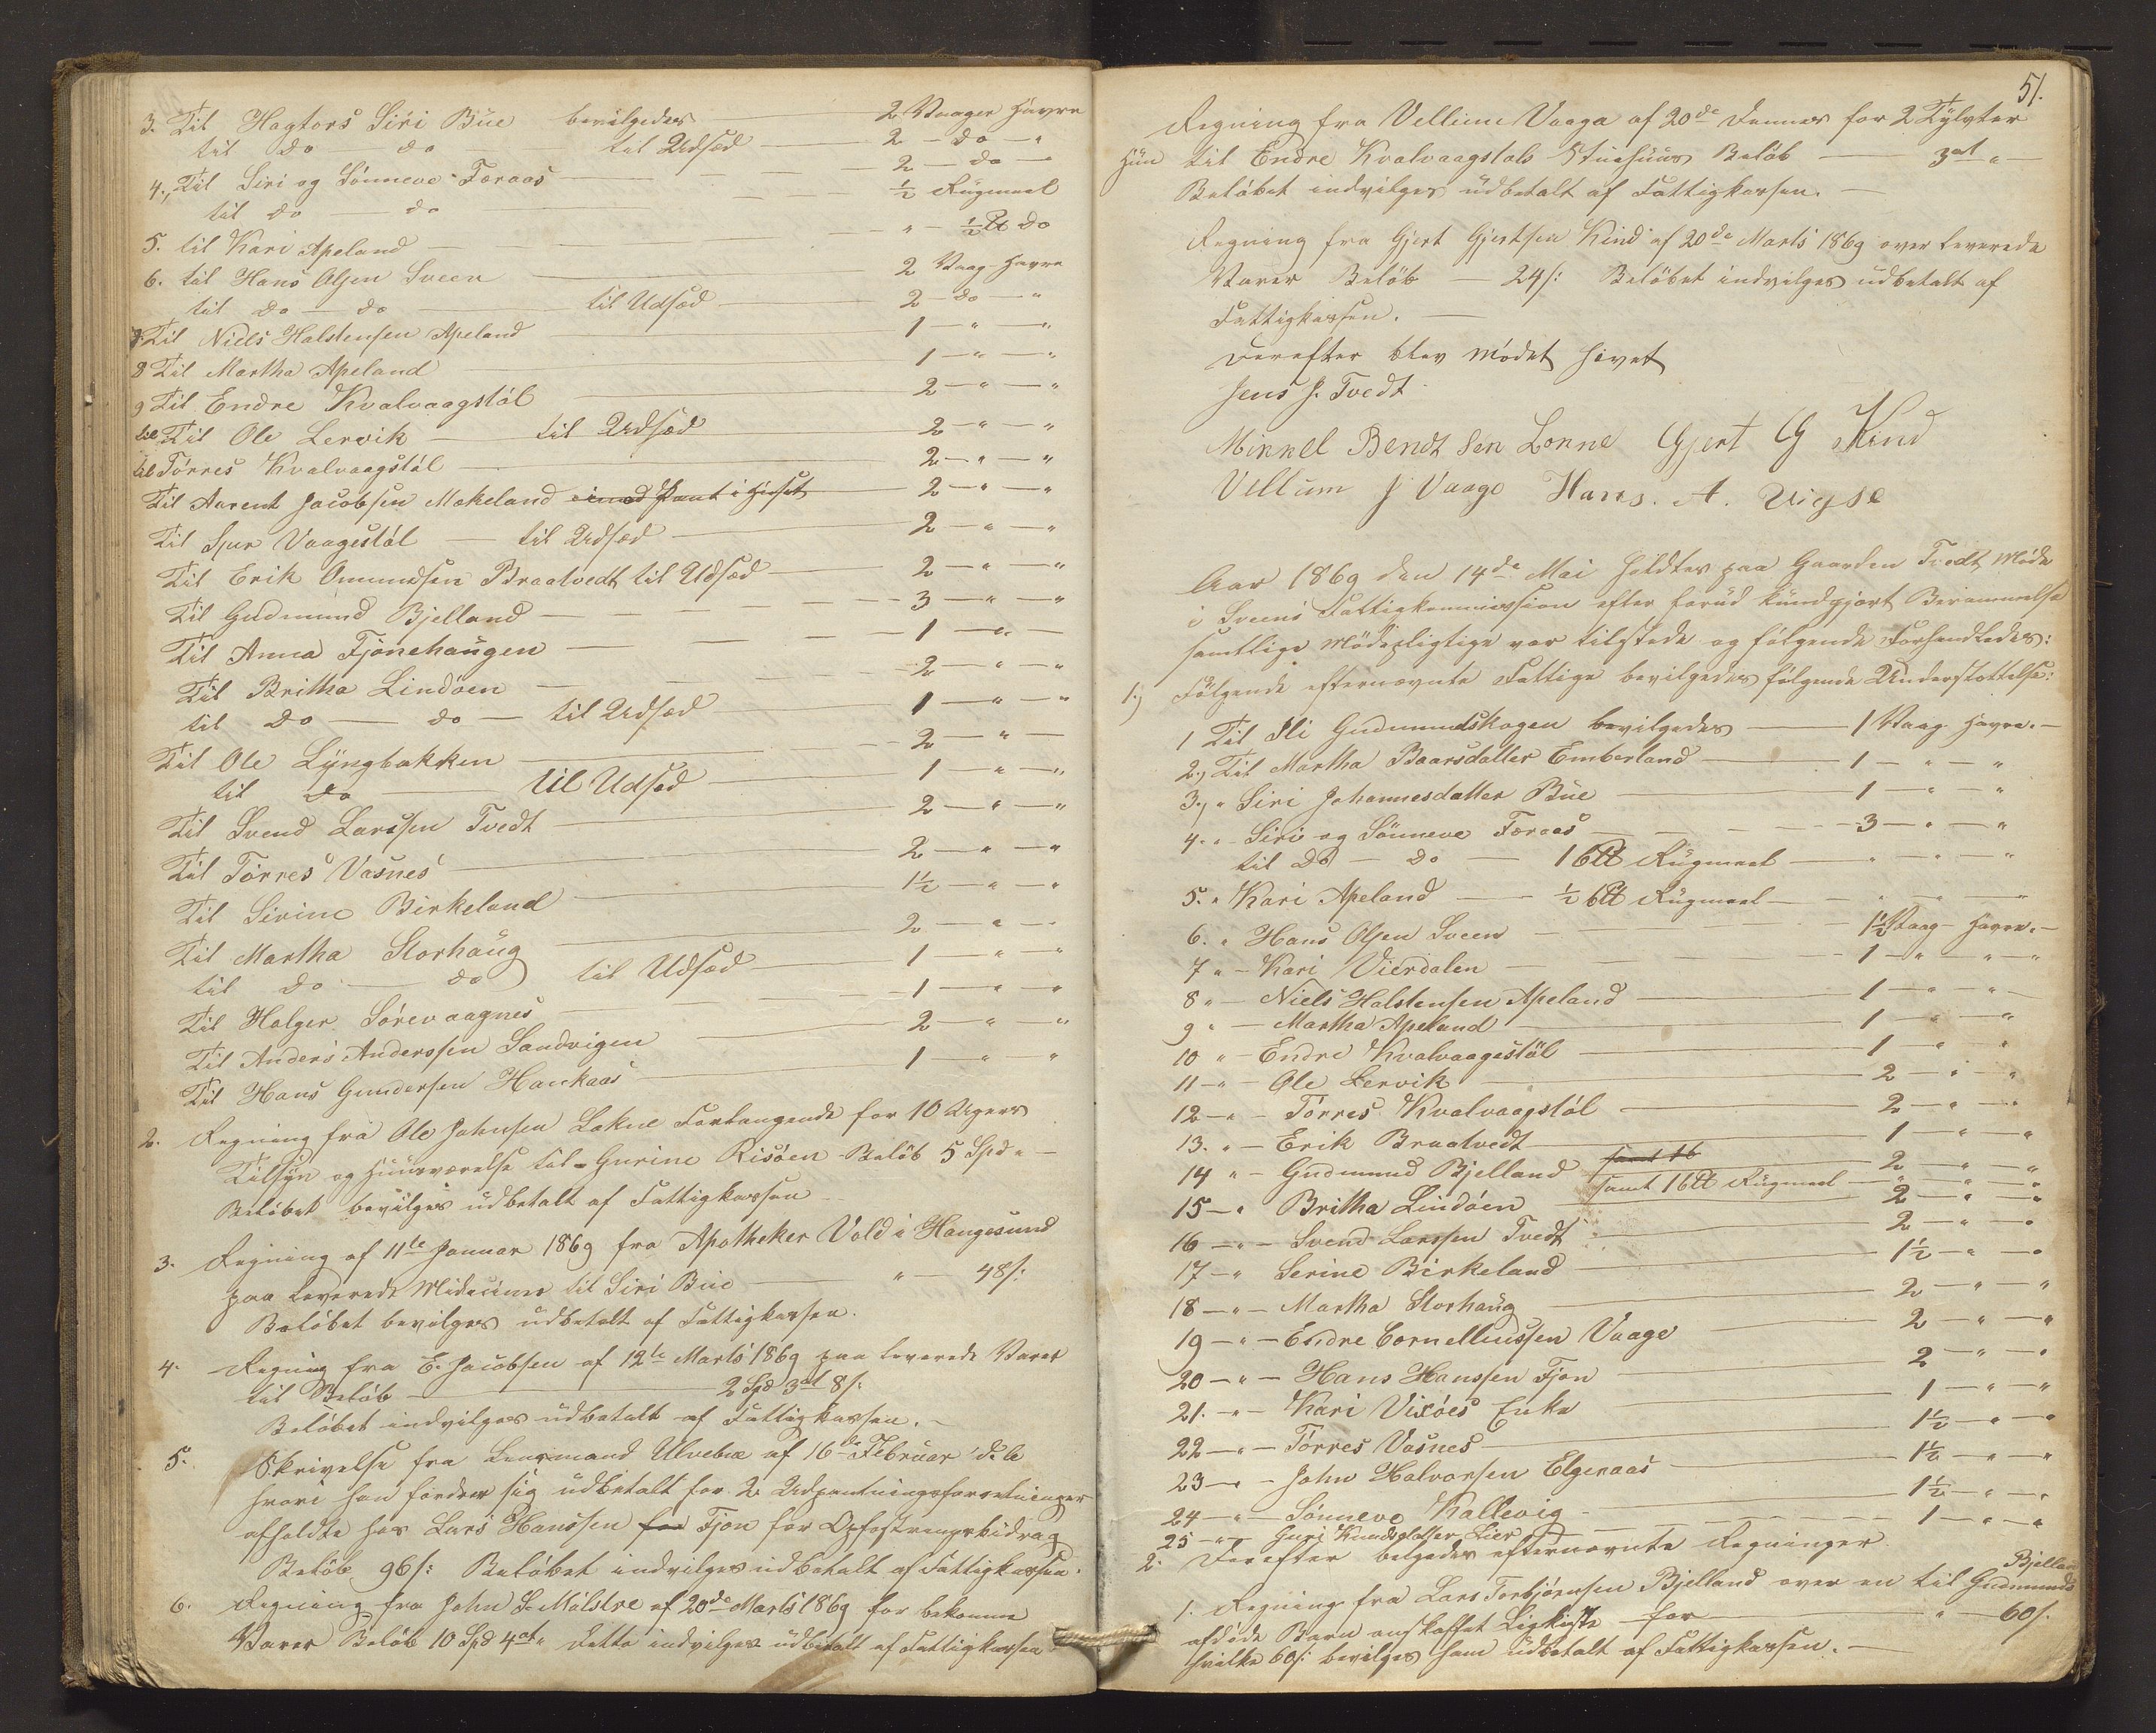 3. Til Hagtors Siri Bue bevilgedes 2 Vaager Havre
til do do til Udsæd 2 - do - "
4., Til Siri og Sönneve Færaas 2 - do -
til do do ½ Rügmeel
5. til Kari Apeland " - ½ do
6. til Hans Olsen Sveen 2 Vaag Havre
til do do til Udsæd 2 - do - "
7 Til Niels Halstensen Apeland 1 - " - "
8 Til Martha Apeland 1 - " - "
9 Til Endre Kvalvaagstöl 2 - " - "
Til Ole Lervik til Udsæd 2 - " - "
til Törres Kvalvaagstöl 2 - " - "
Til Aarent Jacobsen Mækeland imod Pant i Huset 2 - " - "
Til Sjur Vaagestöl til Udsæd 2 - " - "
Til Erik Omundsen Braatvedt til Udsæd 2 - " - "
Til Gudmund Bjelland 3 - " - "
Til Anna Fjönehaugen 1 - " -
Til Britha Lindöen 2 - " - "
til do do til Udsæd 1 - " - "
Til Ole Lyngbakken 2 - " -
til do til Udsæd 1 - " - "
Til Svend Larssen Tvedt 2 - " - "
Til Törres Vasnes 2 - " - "
Til Sirine Birkeland 1½ - " - "
Til Martha Storhaug 2 - " -
til do do til Udsæd 1 - " - "
Til Holger Sörevaagnes 1 - " - "
Til Anders Anderssen Sandvigen 2 - " - "
Til Hans Gundersen Haukaas 1 - " - "
2. Regning fra Ole Johnsen Lokne Forlangende for 10 Ugers
Tilsyn og Huusværelse til Gurine Risöen Belöb 5 Spd "
Belöbet bevilges udbetalt af Fattigkassen
3. Regning af 11te Januar 1869 fra Apotheker Vold i Haugesund
paa leverede Medeciner til Siri Bue " 48 s:
Belöbet bevilges udbetalt af Fattigkassen.
4. Regning fra E. Jacobsen af 12te Marts 1869 paa leverede Varer
til Belöb 2 Spd 3 ort 8 s:
Belöbet indvilges udbetalt af Fattigkassen.
5. Skrivelse fra Lensmand Ulvebne af 16de Februar d. A.
hvori han fordrer sig udbetalt for 2 Udpantningsforretninger
afholdte hos Lars Hanssen for Tjon for Opfostringsbidrag
Belöb 96 s: Belöbet indvilges udbetalt af Fattigkassen.
6. Regning fra John S. Mölstre af 20de Marts 1869 for bekomne
Varer Belöb 10 Spd 4 ort " Dette indvilges udbetalt af Fattigkassen
51.
Regning fra Vellum Vaaga af 20de Dennes for 2 Tylvter
Hün til Endre Kvalvaagstöls Stuehuus Belöb 3 ort "
Belöbet indvilges udbetalt af Fattigkassen.
Regning fra Gjert Gjertsen Kind af 20de Marts 1869 over leverede
Varer Belöb 24 s: Belöbet indvilges udbetalt af
Fattigkassen.
Derefter blev Mödet hævet
Jens J. Tvedt
Mikkel Bendt sen Lonne Gjert G Kind
Vellum J Vaage Hans. A. Vigse
Aar 1869 den 14de Mai holdtes paa Gaarden Tvedt Möde
i Sveens Fattigkommission efter forud kundgjort Berammelse
samtlige Mödepligtige var tilstede og fölgende Forhandledes:
1.) Fölgende efternævnte Fattige bevilgedes fölgende Understøttelse:
1 Til Gudmundskogen bevilgedes 1 Vaag Havre.
2., Til Martha Baarsdatter Emberland 1 - " - "
3., " Siri Johannesdatter Bue 1 - " - "
4. " Siri og Sönneve Færaas 3 - " - "
til do do 1 B℔ Rügmeel - " - " - "
5. " Kari Apeland ½ B℔ Rügmeel
6. " Hans Olsen Sveen 1½ Vaag Havre.
7 " Kari Vierdalen 1 - " - "
8 " Niels Halstensen Apeland 1 - " - "
9 " Martha Apeland 1 - " - "
10 " Endre Kvalvaagestöl 1 - " - "
11 - " - Ole Lervik 2 - " - "
12 - " - Törres Kvalvaagstöl 2 - " - "
13. " - Erik Braatvedt 1 - " - "
14 " - Gudmund Bjelland samt 1 b 2 - " - "
15 - " Britha Lindöen samt 1 B℔ Rügmeel 2 - " - "
16 - " - Svend Larssen Tvedt 2 - " - "
17 - " Serine Birkeland 1½ - " - "
18 - " - Martha Storhaug 2 - " - "
19 - " - Endre Cornelliussen Vaage 2 - " - "
20 - " - Hans Hanssen Tjon 2 - " - "
21. - " - Kari Vixöes Enke 1 - " - "
22 - " - Törres Vasnes 1½ - " - "
23 - " - John Halvorsen Elgeraas 1½ - " - "
24 - " - Sönneve Kallevig 1½ - " - "
25 - " - Guri Knudsdatter Lier 1 - " - "
2. Derefter efternævnte Regninger
1. Regning fra Lars Torbjörnsen Bjelland over en til Gudmunds Bjelland
afdöde Barn anskaffet Ligkiste for " 60 s.
hvilke 60 s: bevilges ham udbetalt af Fattigkassen.